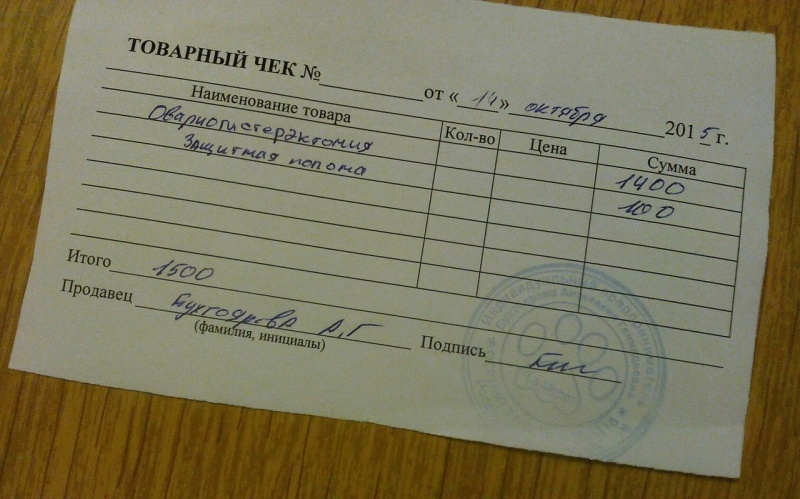 ТОВАРНЫЙ ЧЕК №
от « 14 » октября 2015 г.
Наименование товара Кол-во Цена Сумма
Овариогистерэктомия 1400
Защитная попона 100
Итого 1500
Продавец А.Г
(фамилия, инициалы)
Подпись
Индивидуальный предприниматель